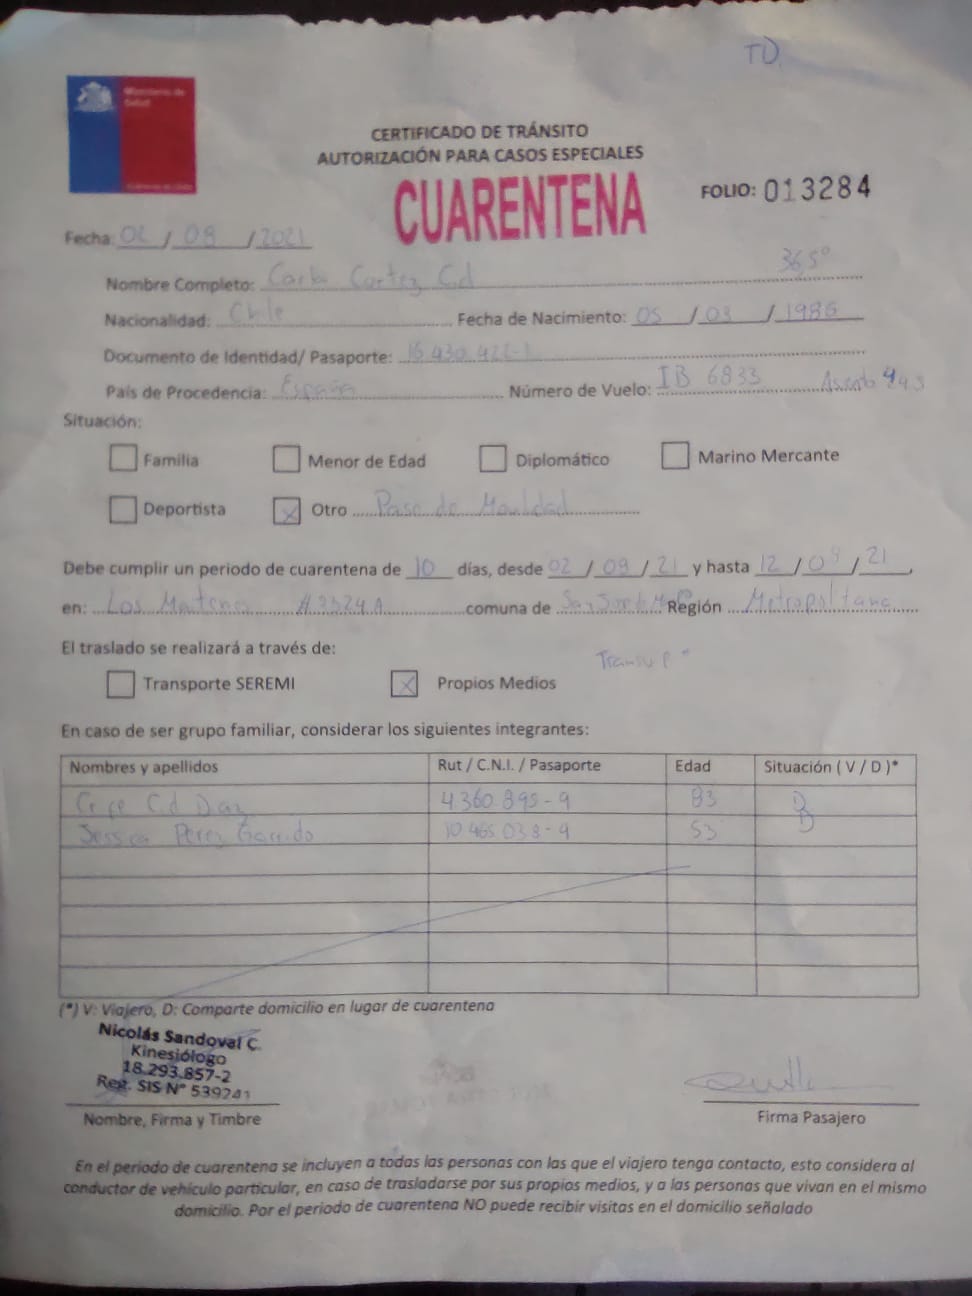 TD
Ministerio de
Salud
CERTIFICADO DE TRÁNSITO
AUTORIZACIÓN PARA CASOS ESPECIALES
CUARENTENA
FOLIO: 013284
Fecha: 02 / 09 / 2021
36,5°
Nombre Completo: Carla Cortez Cid
Nacionalidad: Chile Fecha de Nacimiento: 05 / 03 / 1986
Documento de Identidad/ Pasaporte: 16.430.422-1
País de Procedencia: España Número de Vuelo: IB 6833 Asiento
Situación:
Familia Menor de Edad Diplomático Marino Mercante
Deportista X Otro Pase de Movilidad
Debe cumplir un periodo de cuarentena de 10 días, desde 02 / 09 / 21 y hasta 12 / 09 / 21,
en: Los comuna de Región Metropolitana
El traslado se realizará a través de:
Transporte SEREMI X Propios Medios
En caso de ser grupo familiar, considerar los siguientes integrantes:
Nombres y apellidos Rut / C.N.I. / Pasaporte Edad Situación ( V / D )*
Cid 4.360.895-9 83 D
Perez Garrido 10.465.038-9 53 D
(*) V: Viajero, D: Comparte domicilio en lugar de cuarentena
Nicolás Sandoval C.
Kinesiólogo
18.293.857-2
Reg. SIS N° 539241
Nombre, Firma y Timbre
Firma Pasajero
En el periodo de cuarentena se incluyen a todas las personas con las que el viajero tenga contacto, esto considera al
conductor de vehículo particular, en caso de trasladarse por sus propios medios, y a las personas que vivan en el mismo
domicilio. Por el periodo de cuarentena NO puede recibir visitas en el domicilio señalado